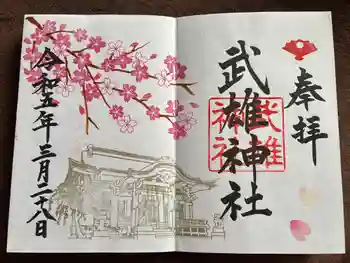 奉拝
武雄神社
武雄
神社
令和五年三月二十八日